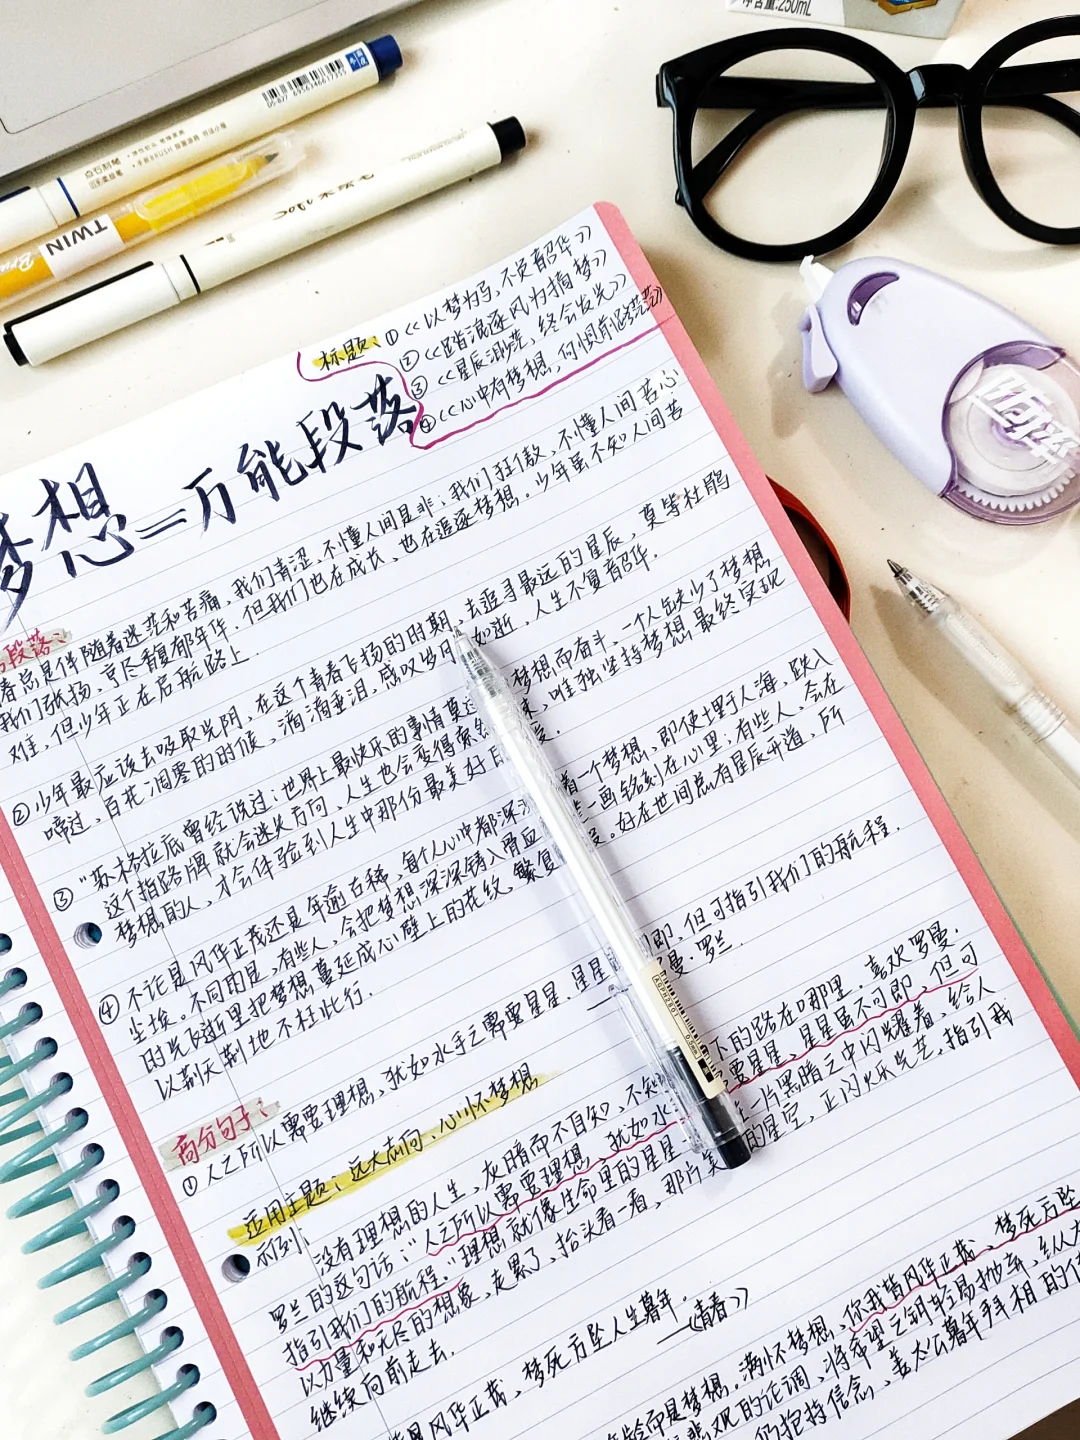 净含量:250mL
6956346617355
点石制笔
TWIN
标题: ①《以梦为马, 不负韶华》
②《踏浪逐风为摘梦》
③《星辰渺茫, 终会发光》
④《心中有梦想, 何惧前路茫茫》
梦想=万能段落
段落:
春总是伴随着迷茫和苦痛, 我们青涩, 不懂人间是非; 我们狂傲, 不懂人间苦心
我们张扬, 享尽馥郁年华. 但我们也在成长, 也在追逐梦想. 少年虽不知人间苦
难, 但少年正在启航路上.
②少年最应该去吸取光阴, 在这个青春飞扬的时期, 去追寻最远的星辰, 莫等杜鹃
啼过, 百花凋零的时候, 滴滴垂泪, 感叹岁月 如逝, 人生不复韶华.
③"苏格拉底曾经说过: 世界上最快乐的事情莫过 梦想而奋斗. 一个人缺少了梦想
这个指路牌就会迷失方向, 人生也会变得索然 来, 唯独坚持梦想最终实现
梦想的人, 才会体验到人生中那份最美好的
④不论是风华正茂还是年逾古稀, 每个人心中都深 着一个梦想, 即使埋于人海, 跌入
尘埃。不同的是, 有些人, 会把梦想深深铸入骨血 一画铭刻在心里; 有些人, 会在
时光飞逝里把梦想蔓延成心壁上的花纹, 繁复 好在世间总有星辰开道, 所
以荆天棘地不枉此行.
高分句子:
①人之所以需要理想, 犹如水手之需要星星. 星星 即, 但可指引我们的航程.
曼·罗兰.
适用主题: 远大志向、心怀梦想
示例: 没有理想的人生, 灰暗而不自知, 不知 下的路在哪里. 喜欢罗曼·
罗兰的这句话: "人之所以需要理想, 犹如水 需要星星, 星星虽不可即, 但可
指引我们的航程." 理想, 就像生命里的星星 一片黑暗之中闪耀着, 给人
以力量和无尽的想象, 走累了, 抬头看一看, 那片美 的星空, 正闪烁光芒, 指引我
继续向前走去.
是风华正茂, 梦死方坠人生暮年. ——《青春》
而是梦想. 满怀梦想, 你我皆风华正茂, 梦死方坠
悲观的论调, 将希望之钥轻易抛弃, 纵
仍抱持信念, 姜太公暮年拜相的